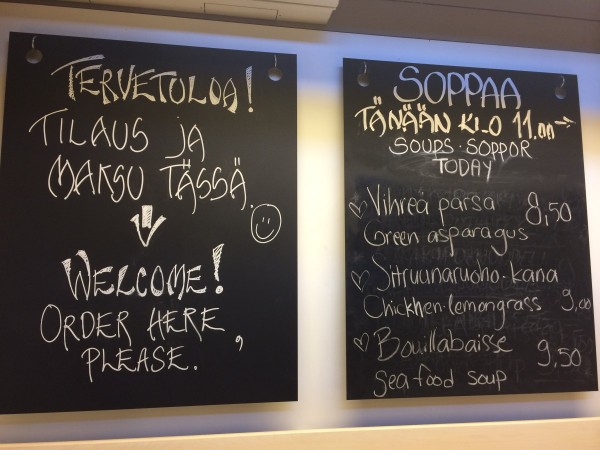 TERVETULOA!
TILAUS JA
MAKSU TÄSSÄ.
WELCOME!
ORDER HERE,
PLEASE.
SOPPAA
TÄNÄÄN KLO 11.00→
SOUPS·SOPPOR
TODAY
Vihreä parsa 8,50
Green asparagus
Sitruunaruoho-kana
Chickhen-lemongrass 9,00
Bouillabaisse 9,50
Seafood soup